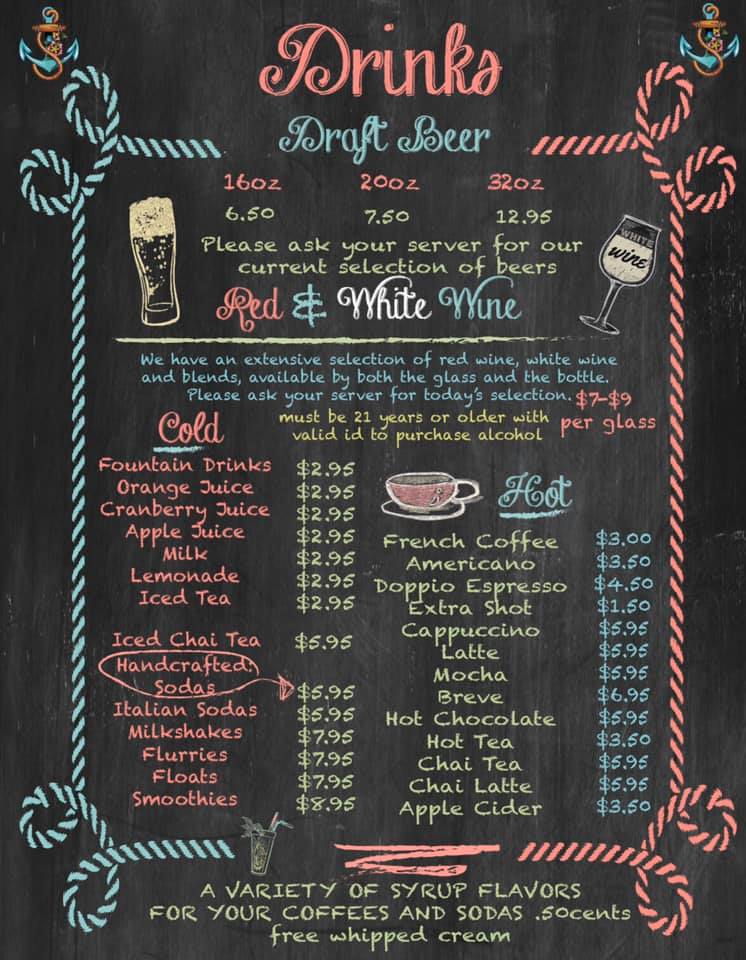 Drinks
Draft Beer
16oz 20oz 32oz
6.50 7.50 12.95
Please ask your server for our
current selection of beers
WHITE
wine
Red & White Wine
We have an extensive selection of red wine, white wine
and blends, available by both the glass and the bottle.
Please ask your server for today's selection.
$7-$9
per glass
must be 21 years or older with
valid id to purchase alcohol
Cold
Fountain Drinks $2.95
Orange Juice $2.95
Cranberry Juice $2.95
Apple Juice $2.95
Milk $2.95
Lemonade $2.95
Iced Tea $2.95
Iced Chai Tea $5.95
Handcrafted:
Sodas $5.95
Italian Sodas $5.95
Milkshakes $7.95
Flurries $7.95
Floats $7.95
Smoothies $8.95
Hot
French Coffee $3.00
Americano $3.50
Doppio Espresso $4.50
Extra Shot $1.50
Cappuccino $5.95
Latte $5.95
Mocha $5.95
Breve $6.95
Hot Chocolate $5.95
Hot Tea $3.50
Chai Tea $5.95
Chai Latte $5.95
Apple Cider $3.50
A VARIETY OF SYRUP FLAVORS
FOR YOUR COFFEES AND SODAS .50cents
free whipped cream